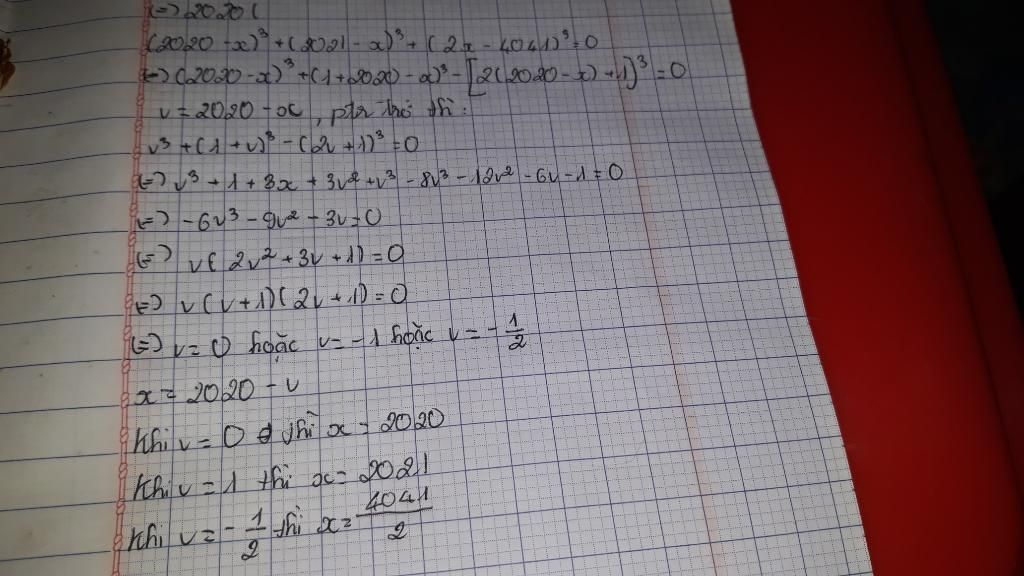 (=) 2020 (
(2020 - x)³ + (2021 - x)³ + (2x - 4041)³ = 0
(=) (2020 - x)³ + (1 + 2020 - x)³ - [2(2020 - x) + 1]³ = 0
v = 2020 - x, ptr thở thì:
v³ + (1 + v)³ - (2v + 1)³ = 0
(=) v³ + 1 + 3x + 3v² + v³ - 8v³ - 12v² - 6v - 1 = 0
(=) -6v³ - 9v² - 3v = 0
(=) v( 2v² + 3v + 1) = 0
(=) v (v + 1)( 2v + 1) = 0
(=) v = 0 hoặc v = -1 hoặc v = -1/2
x = 2020 - v
Khi v = 0 thì x = 2020
Khi v = 1 thì x = 2021
Khi v = -1/2 thì x = 4041/2